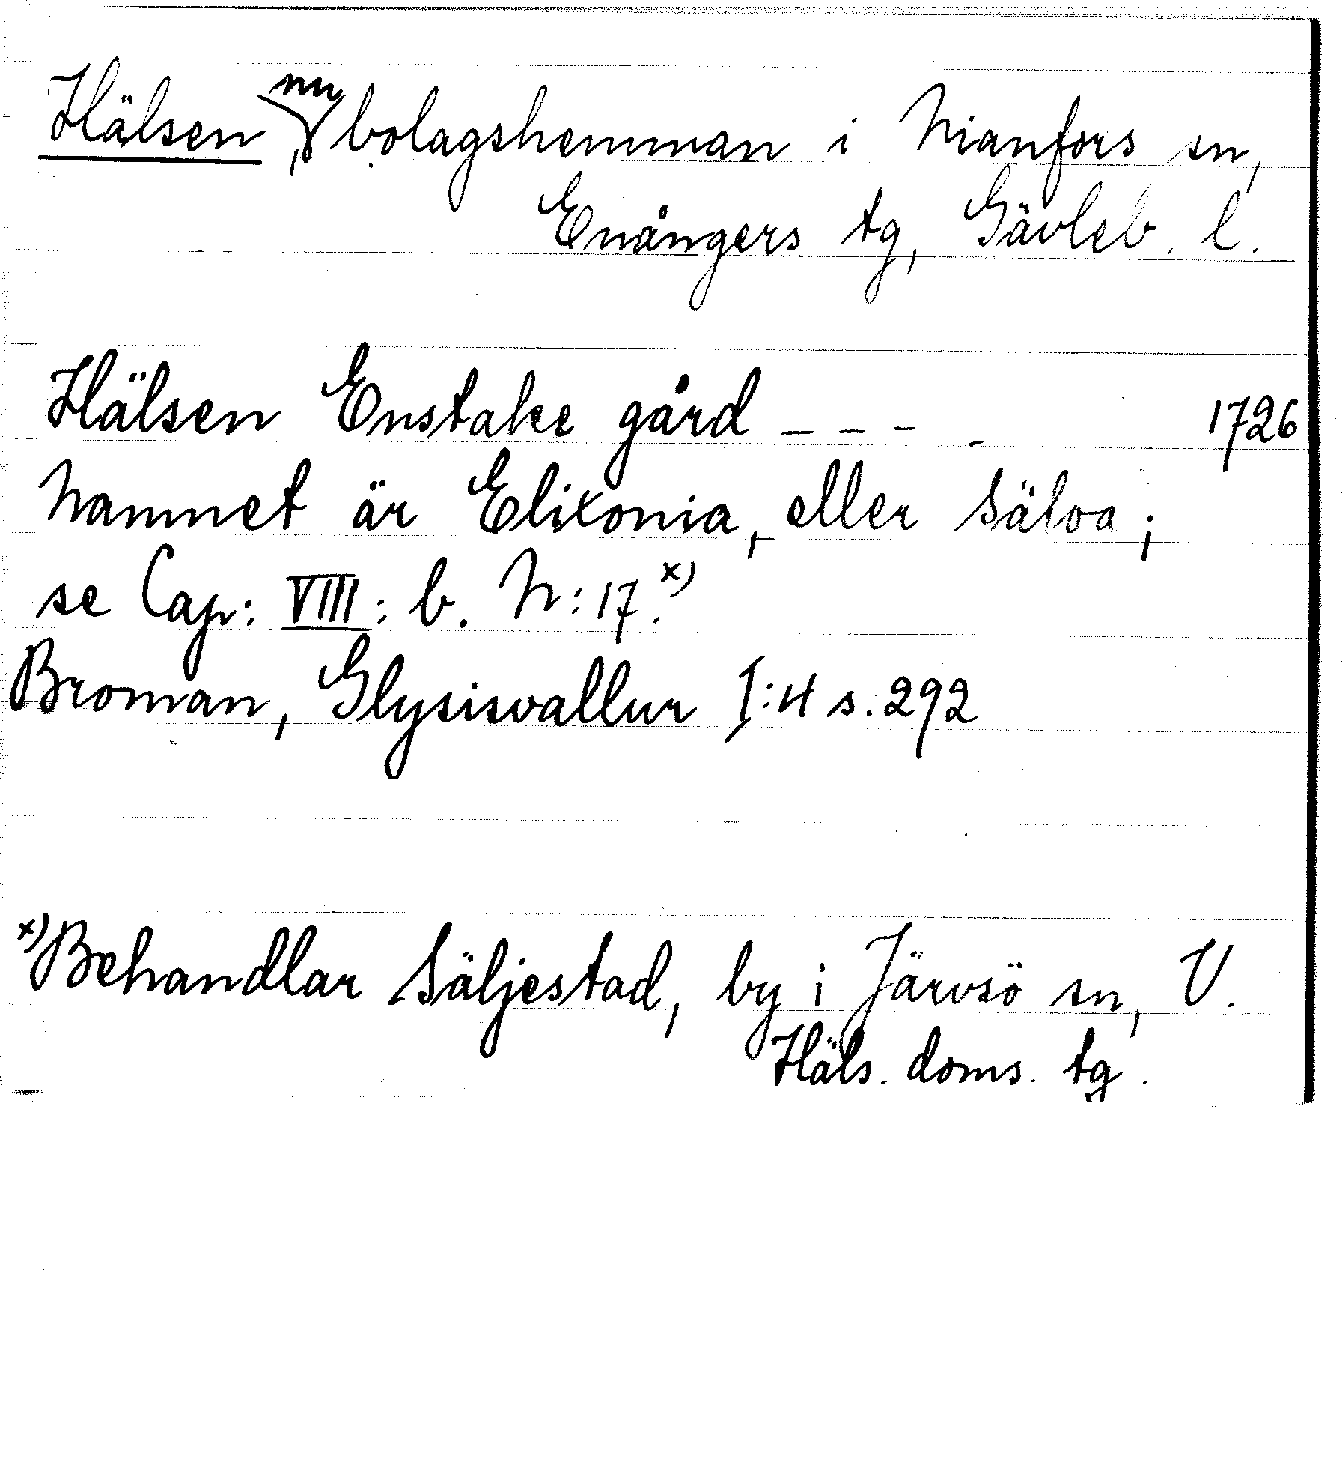 Hälsen, nu bolagshemman i Nianfors sn,
Enångers tg, Gävleb. l.
Hälsen Enstake gård - - - . 1726
Namnet är Elixonia, eller Sälva;
se Cap: VIII: b. N: 17.x)
Broman, Glysisvallur I:4 s. 292
x) Behandlar Säljestad, by i Järvsö sn, V.
Häls. doms. tg.